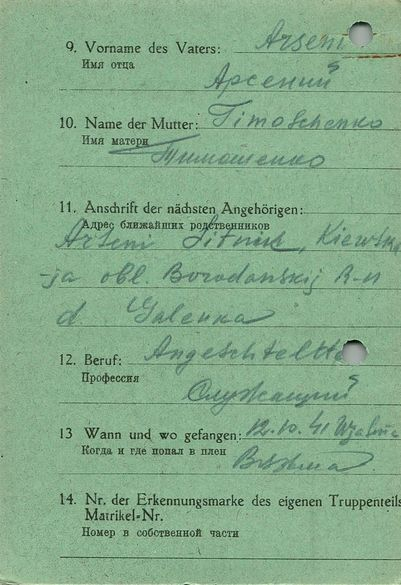 9. Vorname des Vaters: Arseni
Имя отца
Арсений
10. Name der Mutter: Timoschenko
Имя матери
Тимошенко
11. Anschrift der nächsten Angehörigen:
Адрес ближайших родственников
Arseni Sitnik, Kiewska-
-ja obl. Borodanskij R-n
d. Galenka
12. Beruf: Angeschtellte
Профессия
Служащий
13 Wann und wo gefangen: 12.10.41
Когда и где попал в плен
Вязьма
14. Nr. der Erkennungsmarke des eigenen Truppenteils
Matrikel-Nr.
Номер в собственной части